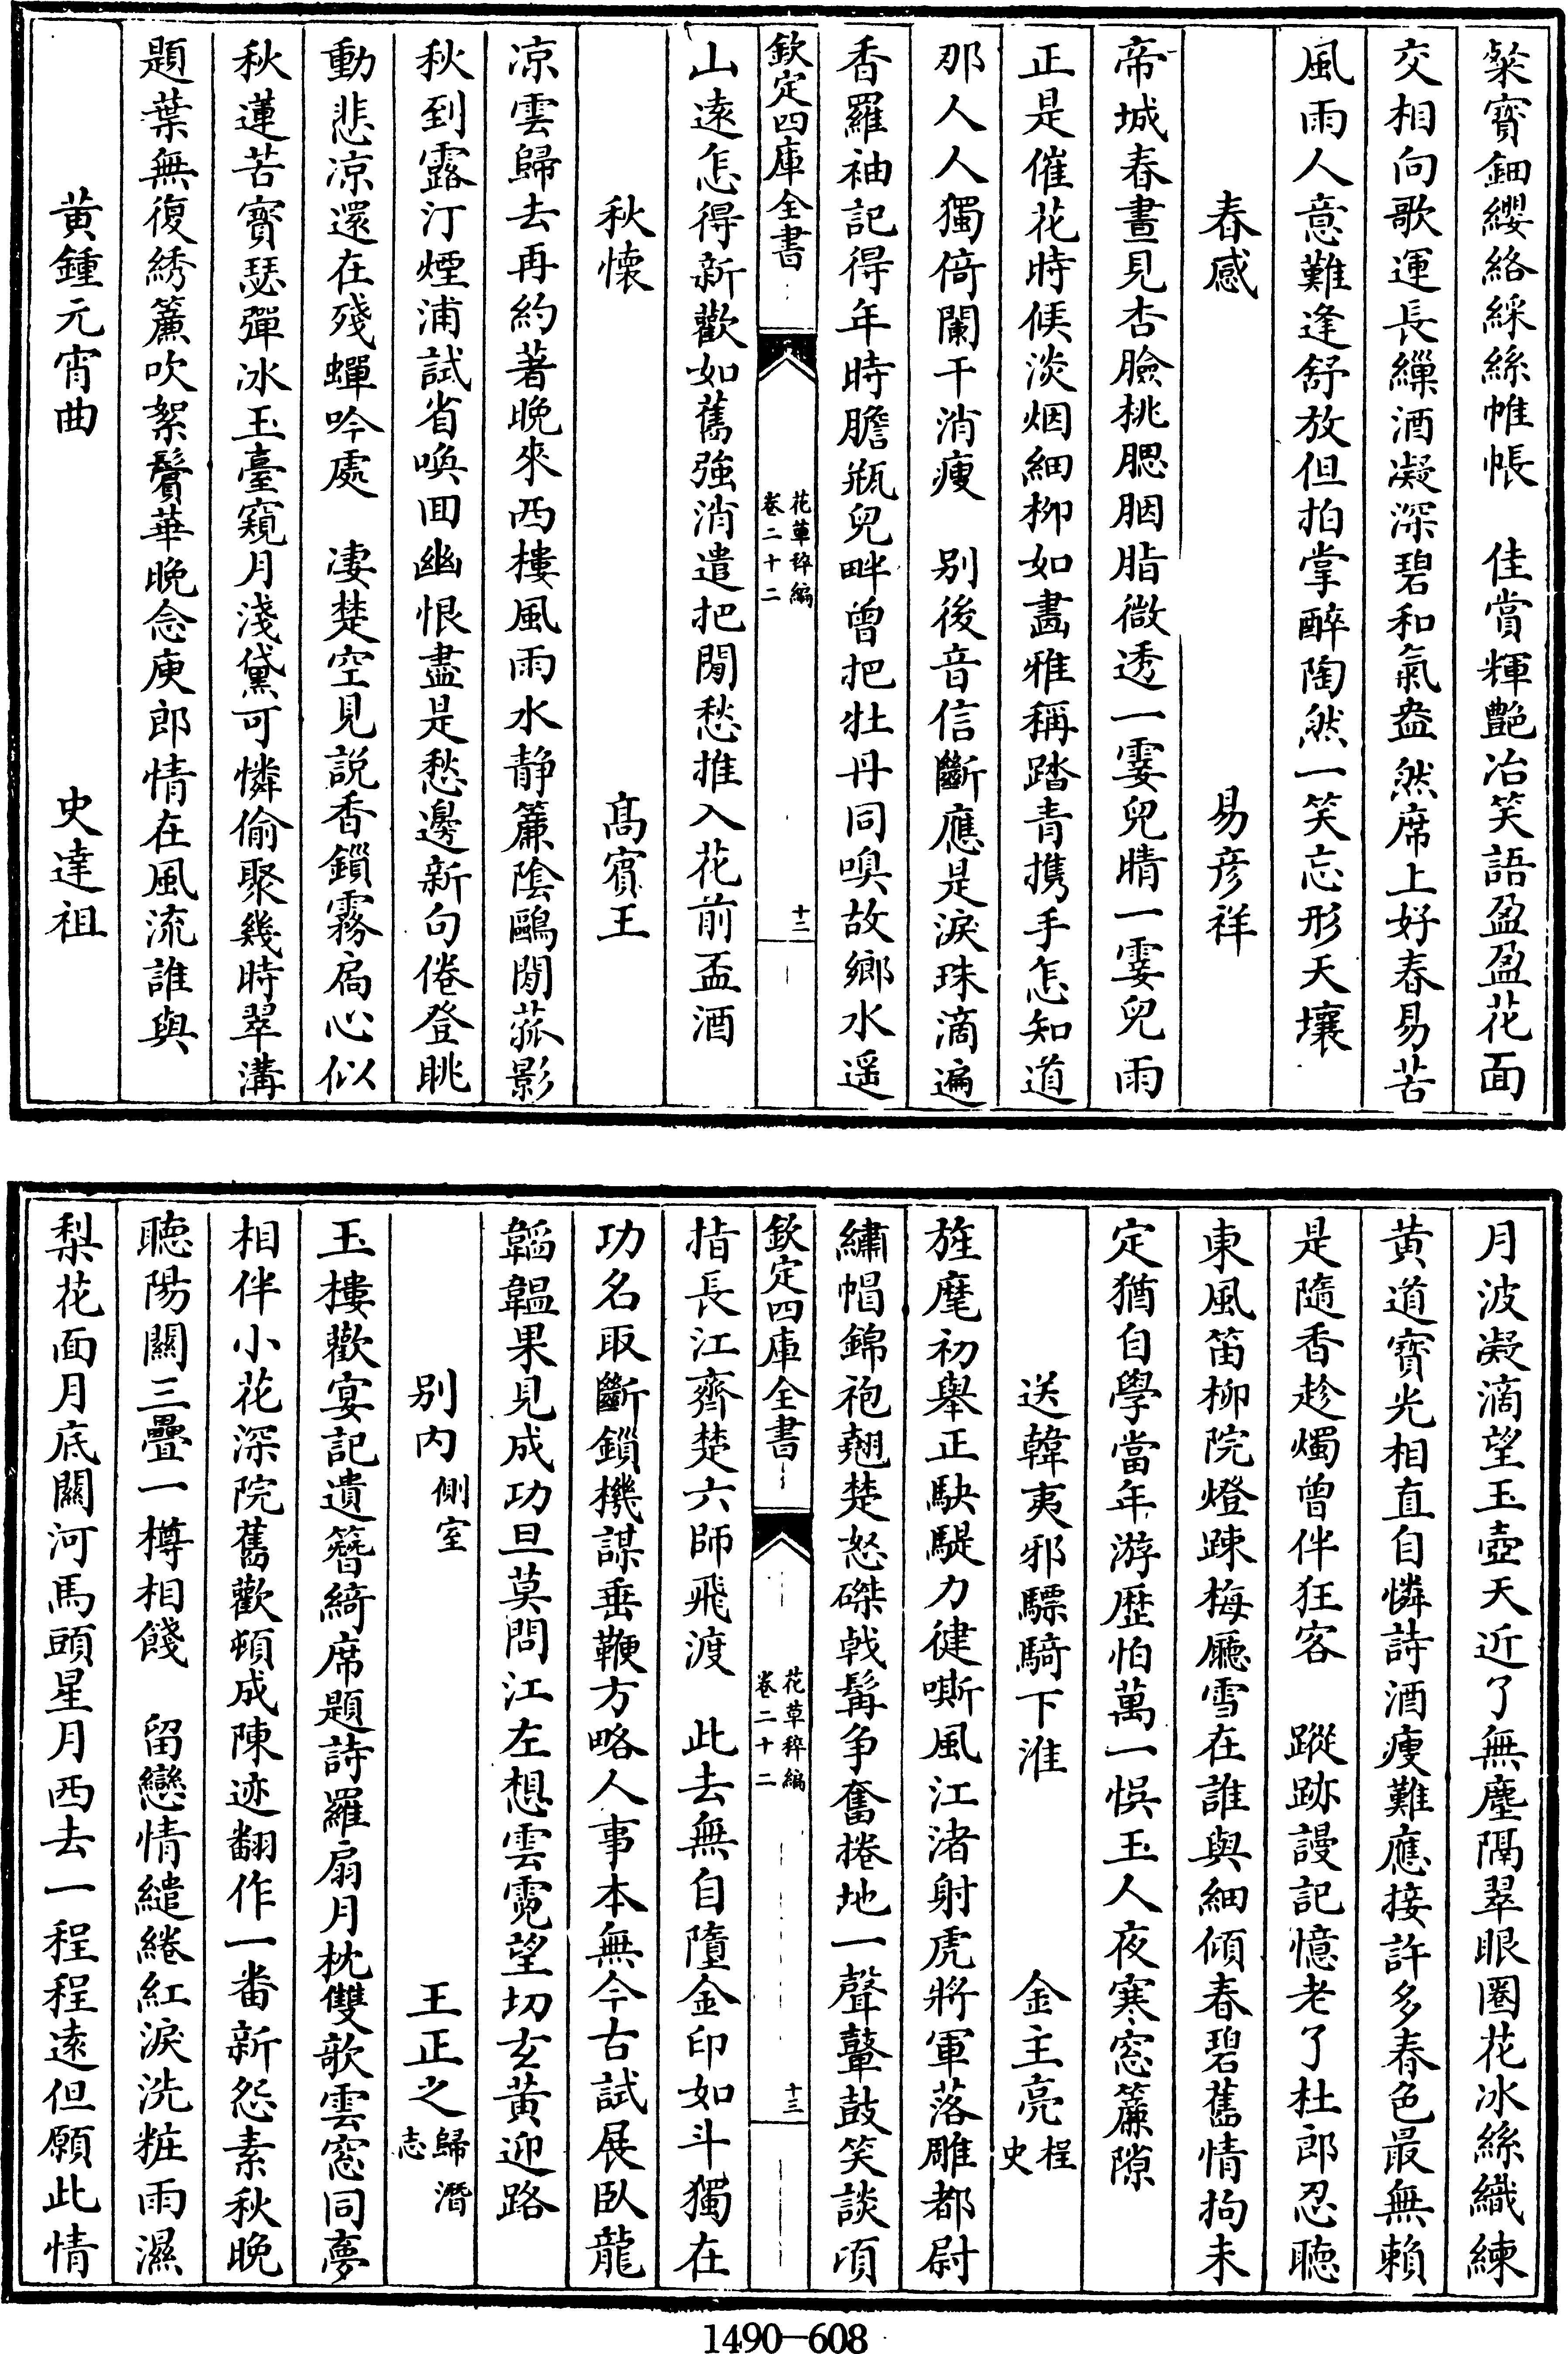 粲寳鈿纓絡綵絲帷帳　佳賞輝艶冶笑語盈盈花面
交相向歌運長繅酒凝深碧和氣盎然席上好春易苦
風雨人意難逢舒放但拍掌醉陶然一笑忘形天壤
春感　易彦祥
帝城春晝見杏臉桃腮胭脂微透一霎兒晴一霎兒雨
正是催花時候淡烟細柳如畫雅稱踏青攜手怎知道
那人人獨倚闌干消瘦　别後音信斷應是淚珠滴遍
香羅袖記得年時膽瓶兒畔曾把牡丹同嗅故鄉水遥
欽定四庫全書　花草稡編卷二十二　十二
山遠怎得新歡如舊強消遣把閒愁推入花前盃酒
秋懷　髙賓王
凉雲歸去再約著晚來西樓風雨水静簾陰鷗閒菰影
秋到露汀煙浦試省喚回幽恨盡是愁邊新句倦登眺
動悲凉還在殘蟬吟處　凄楚空見説香鎖霧扃心似
秋蓮苦寳瑟彈冰玉臺窺月淺黛可憐偷聚幾時翠溝
題葉無復綉簾吹絮鬢華晚念庾郎情在風流誰與
黄鍾元宵曲　史達祖
月波凝滴望玉壺天近了無塵隔翠眼圏花冰絲織練
黄道寳光相直自憐詩酒瘦難應接許多春色最無賴
是隨香趁燭曾伴狂客　蹤跡謾記憶老了杜郎忍聽
東風笛柳院燈踈梅㕔雪在誰與細傾春碧舊情拘未
定猶自學當年游歷怕萬一悞玉人夜寒窓簾隙
送韓夷邪驃騎下淮　金主亮程史
旌麾初舉正駃騠力健嘶風江渚射虎將軍落雕都尉
繡帽錦袍翹楚怒磔戟髯争奮捲地一聲鼙鼓笑談頃
欽定四庫全書　花草稡編卷二十二　十三
指長江齊楚六師飛渡　此去無自墮金印如斗獨在
功名取斷鎖機謀垂鞭方略人事本無今古試展臥龍
韜韞果見成功旦莫問江左想雲霓望切玄黄迎路
别内側室　王正之歸潛志
玉樓歡宴記遺簪綺席題詩羅扇月枕雙歌雲窓同夢
相伴小花深院舊歡頓成陳迹翻作一番新怨素秋晚
聽陽關三疊一樽相餞　留戀情繾綣紅淚洗粧雨濕
梨花面月底關河馬頭星月西去一程程遠但願此情
1490—608